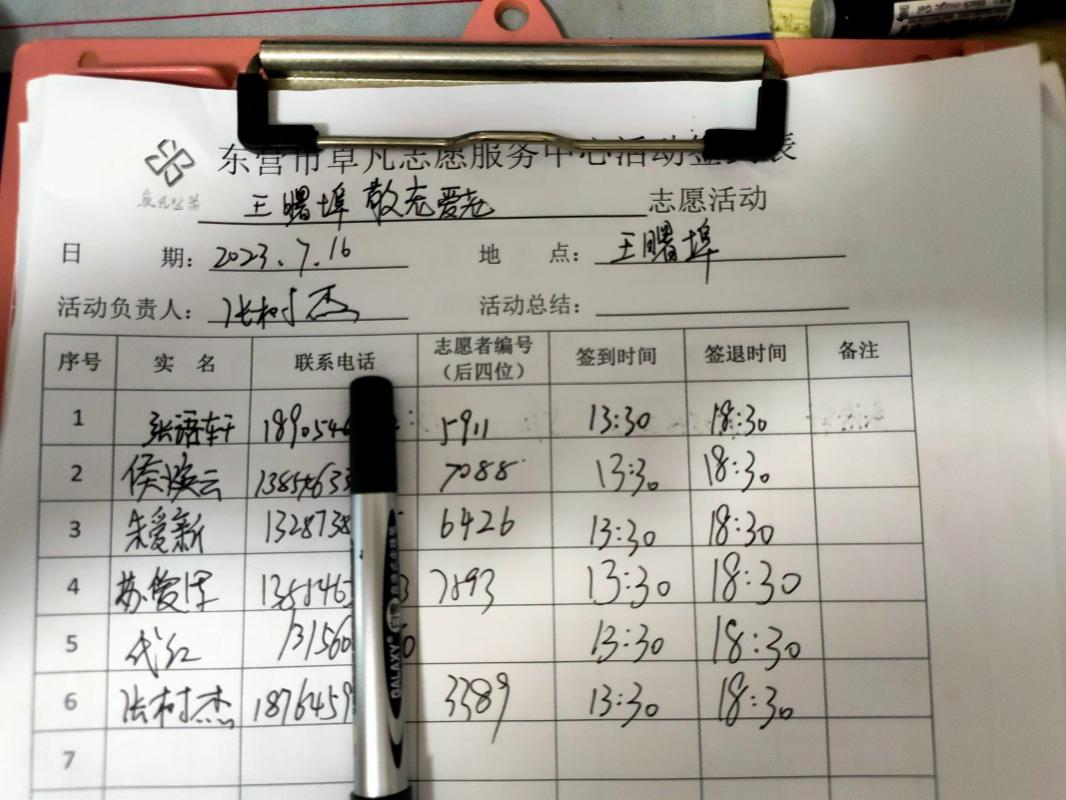 东营市草凡志愿服务中心活动签到表
王曙埠敬老爱老 志愿活动
日 期: 2023.7.16 地 点: 王曙埠
活动负责人: 张树杰 活动总结:
序号 实 名 联系电话 志愿者编号(后四位) 签到时间 签退时间 备注
1 张语轩 1890546 5911 13:30 18:30
2 7088 13:30 18:30
3 朱爱新 1328738 6426 13:30 18:30
4 苏俊泽 7893 13:30 18:30
5 代红 131560 0 13:30 18:30
6 张树杰 1876459 3389 13:30 18:30
7
GALAXY